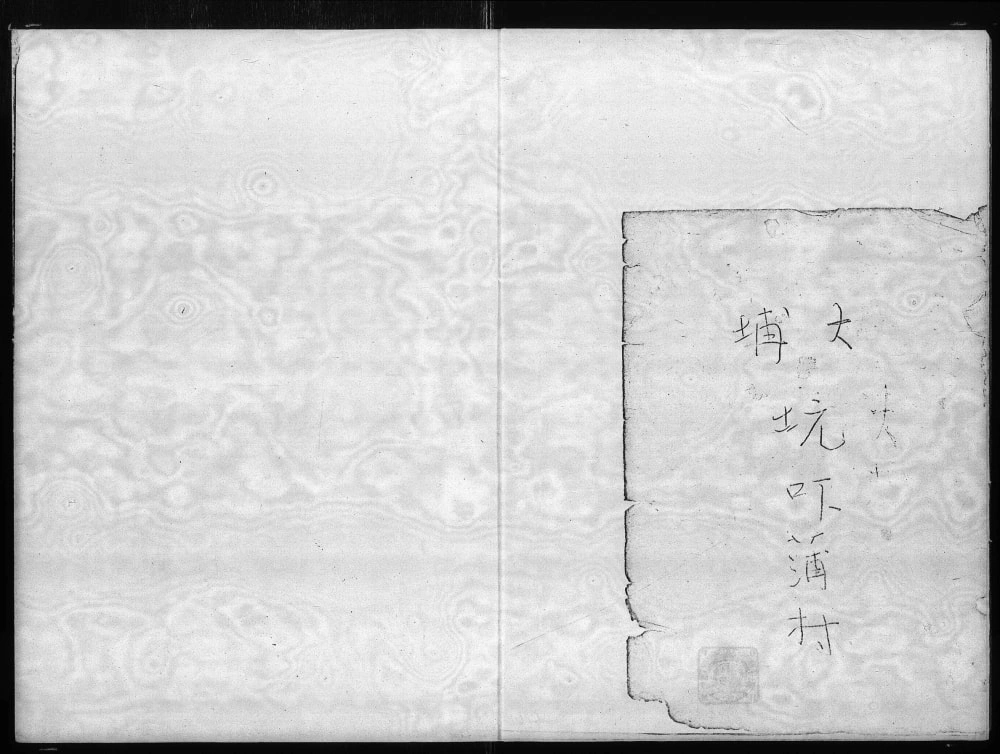 大
埔
坑吓蒲村